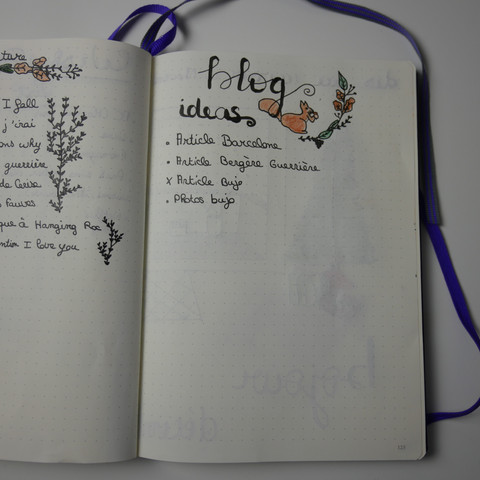 ture
I fall
j'irai
ons why
guerrière
de Cerise
fauves
que à Hanging Roc
I love you
blog
ideas
• Article Barcelone
• Article Bergère Guerrière
x Article Bujo
• Photos bujo